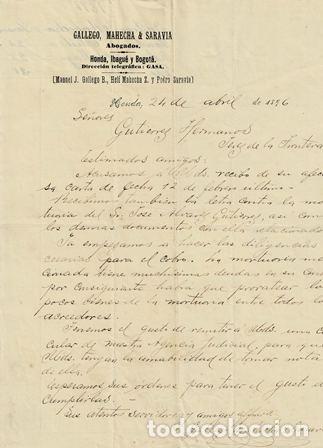 GALLEGO, MAHECHA & SARAVIA
Abogados.
Honda, Ibagué y Bogotá.
Dirección telegráfica: GASA.
[Manuel J. Gallego B., Helí Mahecha Z. y Pedro Saravia]
Honda, 24 de abril de 1896
Señores
Gutierrez Hermanos
Jerez de la Frontera
Estimados amigos:
Acusamos á Uds. recibo de su
carta de fecha 12 de febrero último.
Recibimos tambien la letra contra la mor
tuoria del Sr. José Alvarez Gutierrez, así com
los demas documentos con ella relacionado
Ya empezamos á hacer las diligencias
cesarias para el cobro. La mortuoria me
cionada tiene muchisimas deudas en su con
por consiguiente habrá que prorratear los
pocos bienes de la mortuoria entre todos lo
acreedores.
Tenemos el gusto de remitir á Uds. una c
cular de nuestra Agencia Judicial, para qu
Uds. tengan la amabilidad de tomar nota
de ella.
Esperamos sus órdenes para tener el gusto d
cumplirlas.
Sus atentos servidores y amigos
todocoleccion.net